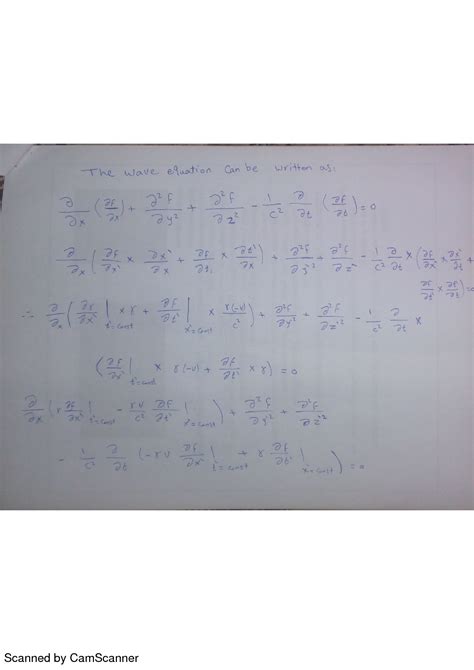 The wave equation can be written as:
∂/∂x (∂f/∂x) + ∂²f/∂y² + ∂²f/∂z² - 1/c² ∂/∂t (∂f/∂t) = 0
∂/∂x (∂f/∂x' × ∂x'/∂x + ∂f/∂t' × ∂t'/∂x) + ∂²f/∂y'² + ∂²f/∂z'² - 1/c² ∂/∂t × (∂f/∂x' × ∂x'/∂t +
∂f/∂t' × ∂t'/∂t) = 0
∴ ∂/∂x (∂f/∂x' |t'=const × γ + ∂f/∂t' |x'=const × γ(-v)/c²) + ∂²f/∂y'² + ∂²f/∂z'² - 1/c² ∂/∂t ×
(∂f/∂x' |t'=const × γ(-v) + ∂f/∂t' × γ) = 0
∂/∂x (γ ∂f/∂x' |t'=const - γv/c² ∂f/∂t' |x'=const) + ∂²f/∂y'² + ∂²f/∂z'²
- 1/c² ∂/∂t (-γv ∂f/∂x' |t'=const + γ ∂f/∂t' |x'=const) = 0
Scanned by CamScanner